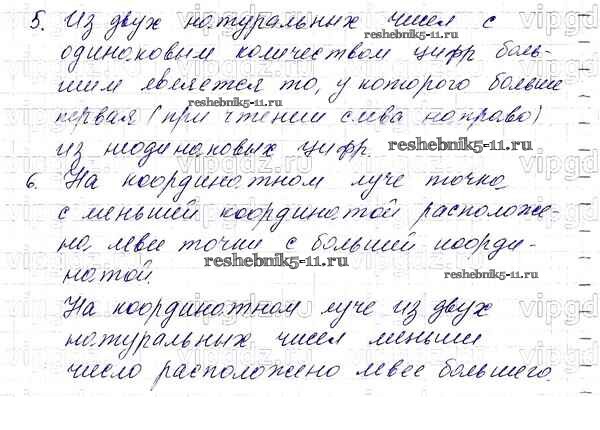 5. Из двух натуральных чисел с
одинаковым количеством цифр боль-
шим является то, у которого больше
первая (при чтении слева направо)
из неодинаковых цифр.
6. На координатном луче точка
с меньшей координатой расположе-
на левее точки с большей коорди-
натой.
На координатном луче из двух
натуральных чисел меньшее
число расположено левее большего.
reshebnik5-11.ru
reshebnik5-11.ru
reshebnik5-11.ru
reshebnik5-11.ru
reshebnik5-11.ru
reshebnik5-11.ru